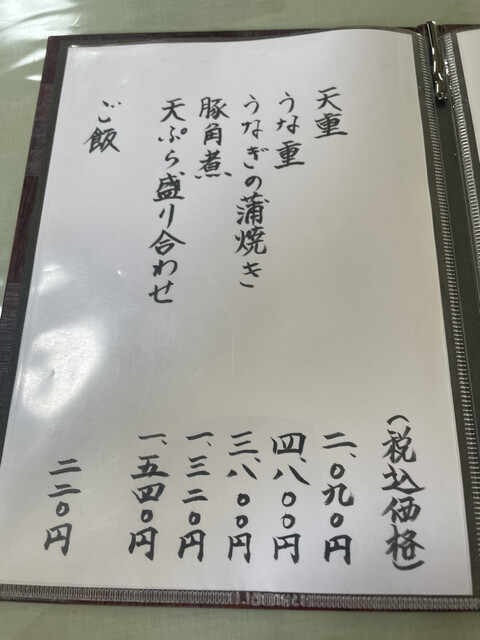 (税込価格)
天重 二、〇九〇円
うな重 四、八〇〇円
うなぎの蒲焼き 三、八〇〇円
豚角煮 一、三二〇円
天ぷら盛り合わせ 一、五四〇円
ご飯 二二〇円